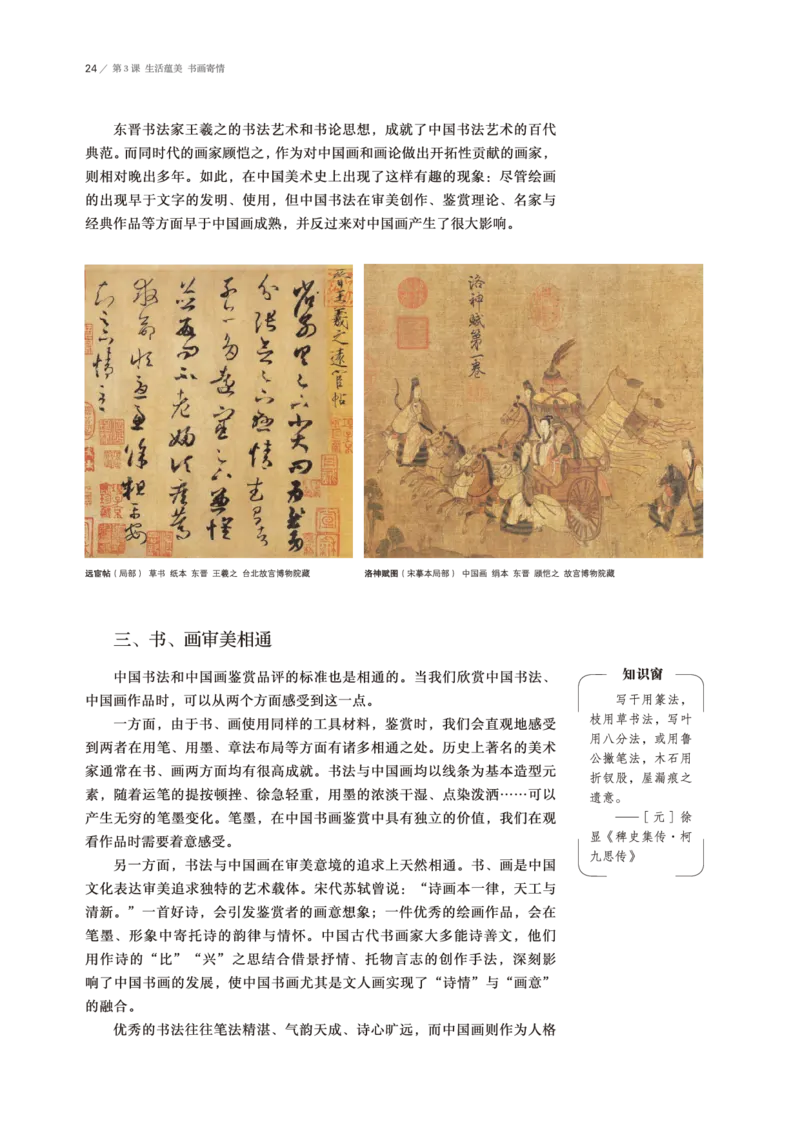 24 / 第3课 生活蕴美 书画寄情
东晋书法家王羲之的书法艺术和书论思想，成就了中国书法艺术的百代
典范。而同时代的画家顾恺之，作为对中国画和画论做出开拓性贡献的画家，
则相对晚出多年。如此，在中国美术史上出现了这样有趣的现象：尽管绘画
的出现早于文字的发明、使用，但中国书法在审美创作、鉴赏理论、名家与
经典作品等方面早于中国画成熟，并反过来对中国画产生了很大影响。
晋王羲之远宦帖
洛神赋第一卷
远宦帖（局部） 草书 纸本 东晋 王羲之 台北故宫博物院藏
洛神赋图（宋摹本局部） 中国画 绢本 东晋 顾恺之 故宫博物院藏
三、书、画审美相通
中国书法和中国画鉴赏品评的标准也是相通的。当我们欣赏中国书法、
中国画作品时，可以从两个方面感受到这一点。
一方面，由于书、画使用同样的工具材料，鉴赏时，我们会直观地感受
到两者在用笔、用墨、章法布局等方面有诸多相通之处。历史上著名的美术
家通常在书、画两方面均有很高成就。书法与中国画均以线条为基本造型元
素，随着运笔的提按顿挫、徐急轻重，用墨的浓淡干湿、点染泼洒……可以
产生无穷的笔墨变化。笔墨，在中国书画鉴赏中具有独立的价值，我们在观
看作品时需要着意感受。
另一方面，书法与中国画在审美意境的追求上天然相通。书、画是中国
文化表达审美追求独特的艺术载体。宋代苏轼曾说：“诗画本一律，天工与
清新。”一首好诗，会引发鉴赏者的画意想象；一件优秀的绘画作品，会在
笔墨、形象中寄托诗的韵律与情怀。中国古代书画家大多能诗善文，他们
用作诗的“比”“兴”之思结合借景抒情、托物言志的创作手法，深刻影
响了中国书画的发展，使中国书画尤其是文人画实现了“诗情”与“画意”
的融合。
优秀的书法往往笔法精湛、气韵天成、诗心旷远，而中国画则作为人格
知识窗
写干用篆法，
枝用草书法，写叶
用八分法，或用鲁
公撇笔法，木石用
折钗股，屋漏痕之
遗意。
——［元］徐
显《稗史集传·柯
九思传》